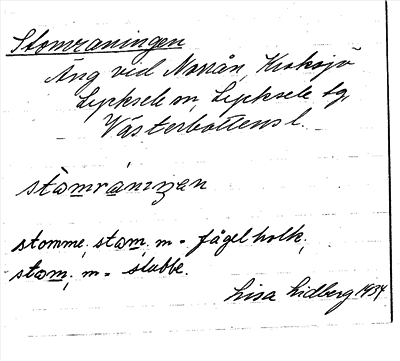 Stomraningen
Äng vid Norrån, Kroksjö
Lycksele sn, Lycksele tg,
Västerbottens l.
stomráningen
stomme, stom, m = fågelholk,
stom, m = stubbe.
Lisa Lidberg 1934